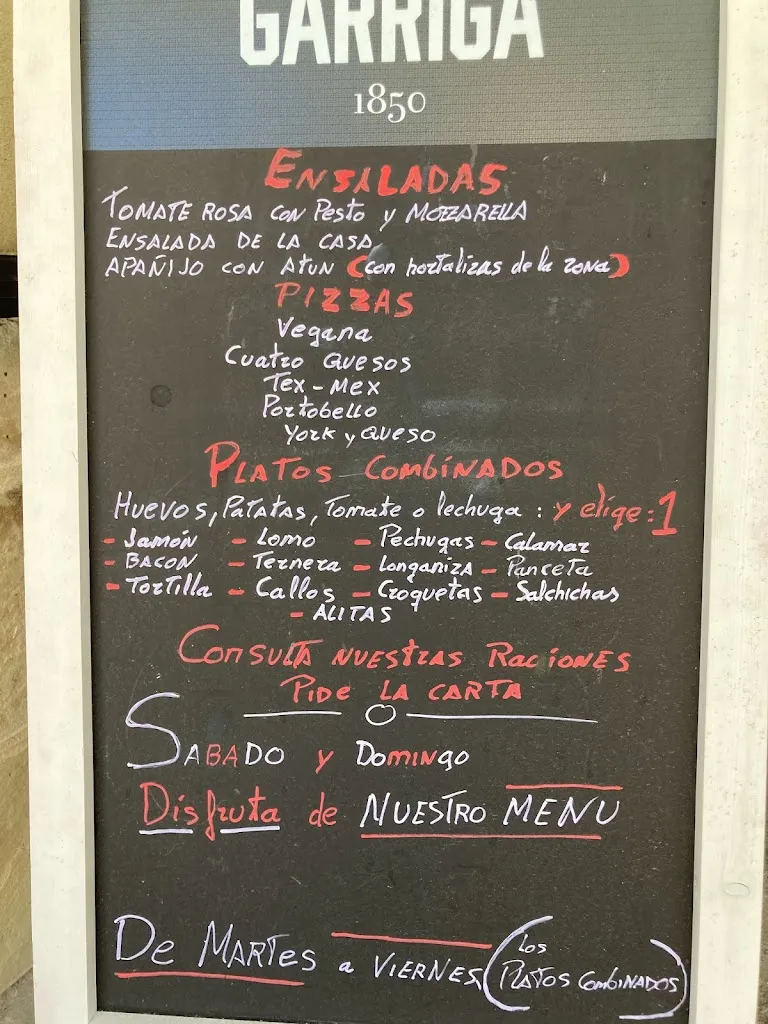 GARRIGA
1850
ENSALADAS
TOMATE ROSA CON PESTO y MOZZARELLA
ENSALADA DE LA CASA
APAÑIJO CON ATUN (con hortalizas de la zona)
PIZZAS
Vegana
Cuatro quesos
Tex-Mex
Portobello
York y queso
PLATOS COMBINADOS
Huevos, Patatas, Tomate o lechuga : y elige: 1
- Jamón - Lomo - Pechugas - Calamar
- BACON - Ternera - Longaniza - Panceta
- Tortilla - Callos - Croquetas - Salchichas
- ALITAS
CONSULTA NUESTRAS RACIONES
PIDE LA CARTA
SABADO y Domingo
Disfruta de NUESTRO MENU
De MARTES a VIERNES (los PLATOS COMBINADOS)